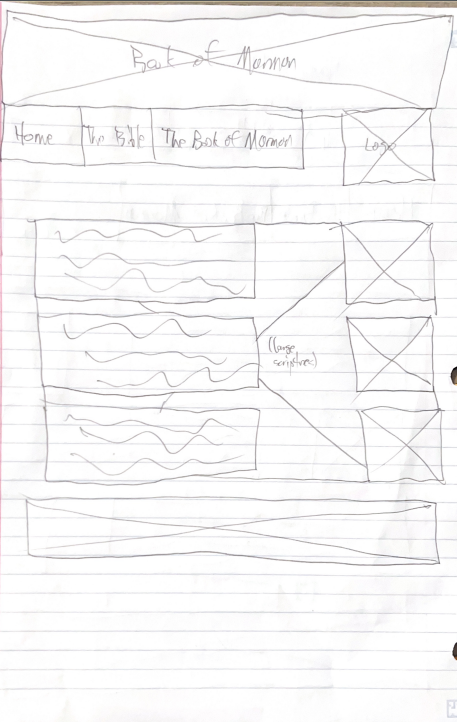 Book of Mormon
Home
The Bible
The Book of Mormon
Logo
(large
scriptures)